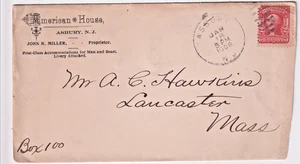 American House,
ASBURY, N. J.
JOHN R. MILLER, - - Proprietor.
First-Class Accommodations for Man and Beast.
Livery Attached.
JAN
8 AM
Mr A. C. Hawkins
Lancaster
Mass
Box 100